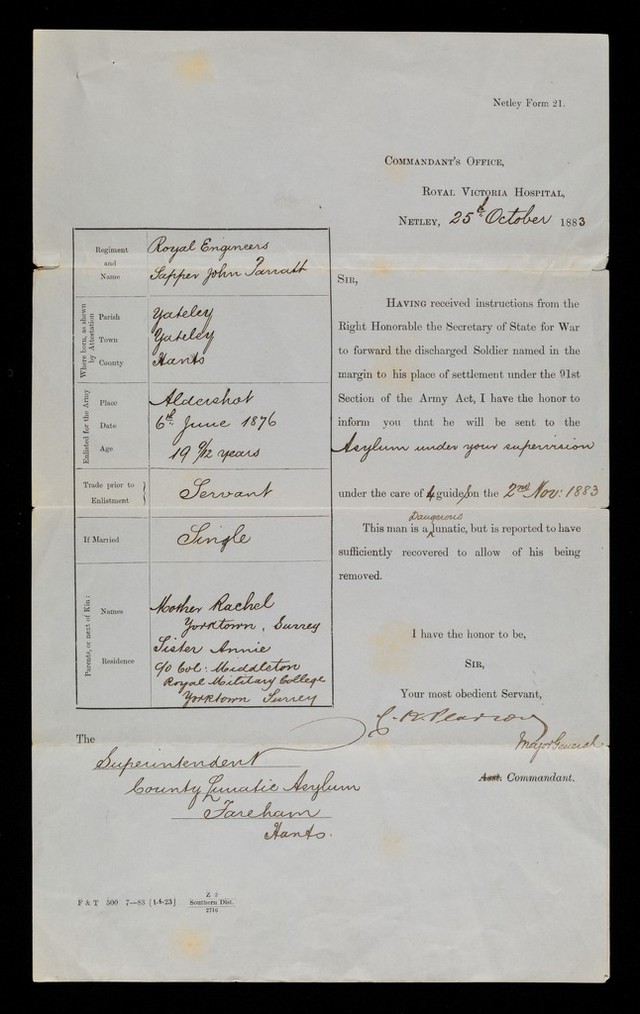 Netley Form 21.
COMMANDANT'S OFFICE,
ROYAL VICTORIA HOSPITAL,
NETLEY, 25th October 1883
Regiment and Name
Royal Engineers
Sapper John Tarratt
Where born, as shown by Attestation
Parish Yateley
Town Yateley
County Hants
Enlisted for the Army
Place Aldershot
Date 6th June 1876
Age 19 9/12 years
Trade prior to Enlistment } Servant
If Married Single
Parents, or next of Kin:
Names
Residence
Mother Rachel
Yorktown, Surrey
Sister Annie
c/o Col: Middleton
Royal Military College
Yorktown Surrey
SIR,
HAVING received instructions from the
Right Honorable the Secretary of State for War
to forward the discharged Soldier named in the
margin to his place of settlement under the 91st
Section of the Army Act, I have the honor to
inform you that he will be sent to the
Asylum under your supervision
under the care of guide on the 2nd Nov: 1883
Dangerous
This man is a lunatic, but is reported to have
sufficiently recovered to allow of his being
removed.
I have the honor to be,
SIR,
Your most obedient Servant,
Pearson
Major General
Asst. Commandant.
The
Superintendent
County Lunatic Asylum
Fareham
Hants.
F & T 500 7—83 [1-4-23]
Z 2
Southern Dist.
2716